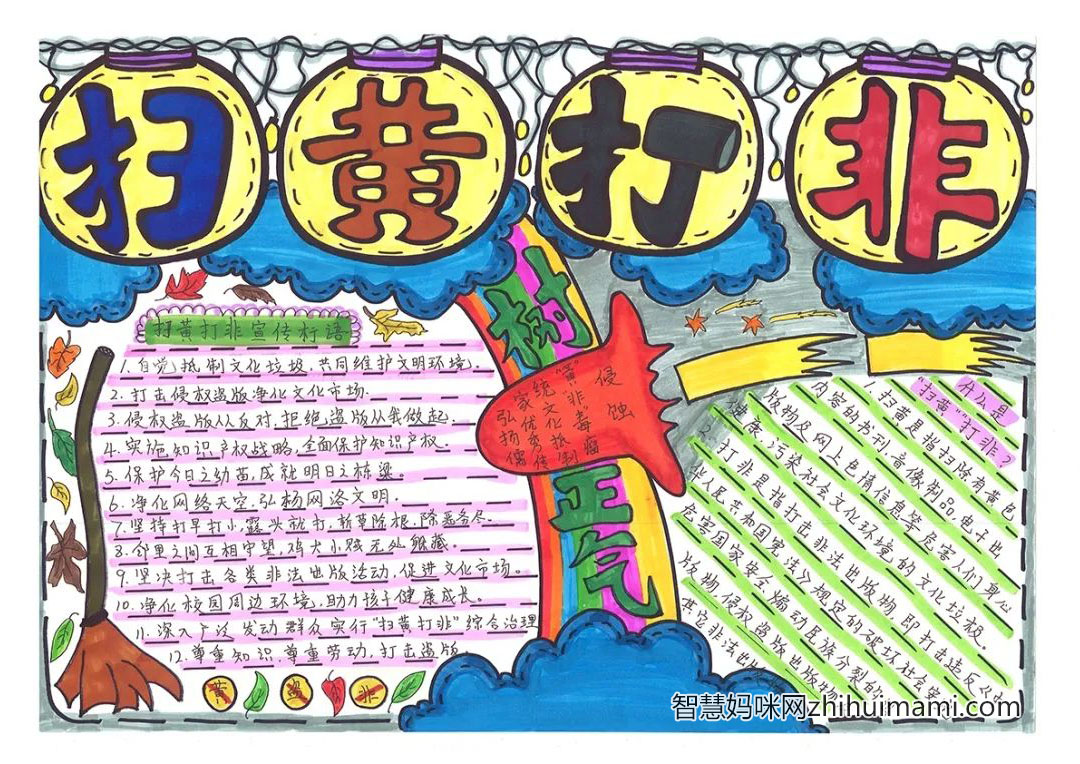 扫黄打非
扫黄打非宣传标语
1.自觉抵制文化垃圾,共同维护文明环境.
2.打击侵权盗版净化文化市场.
3.侵权盗版人人反对,拒绝盗版从我做起.
4.实施知识产权战略,全面保护知识产权.
5.保护今日之幼苗,成就明日之栋梁。
6.净化网络天空,弘杨网洛文明.
7.坚持打早打小,露头就打,斩草除根,除恶务尽.
8.邻里之间互相守望,鸡犬小贼无处躲藏.
9.坚决打击各类非法出版活动,促进文化市场。
10.净化校园周边环境,助力孩子健康成长。
11.深入广泛发动群众实行“扫黄打非”综合治理
12.尊重知识,尊重劳动,打击盗版
黄 盗 非
树
弘扬儒
家优秀传
统文化抵制
“黄”非毒瘤
侵蚀
正气
什么是
“扫黄”“打非”?
1.扫黄是指扫除有黄色
内容的书刊、音像制品、电子出
版物及网上色情信息等危害人们身心
健康、污染社会文化环境的文化垃圾。
2.打非是指打击非法出版物即打击违反《中
华人民共和国宪法》规定的破坏社会安
危害国家安全、煽动民族分裂的
版物、侵权盗版出版物
其它非法出版
智慧妈咪网zhihuimami.com